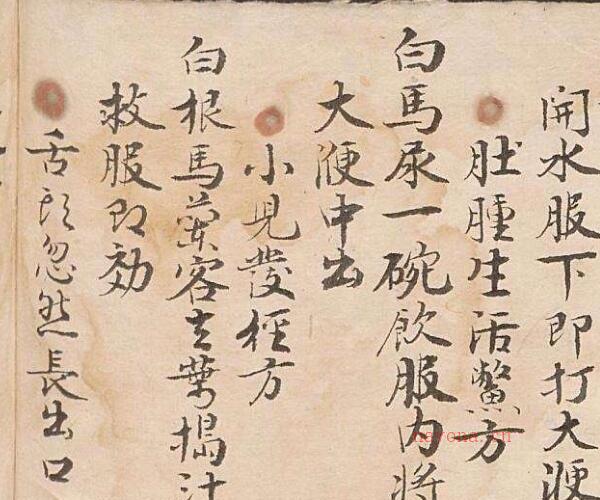 開水服下即打大便
肚腫生活鱉方
白馬尿一碗飲服內將
大便中出
小兒發徑方
白根馬蘭客去葉搗汁
救服即効
舌頭忽然長出口